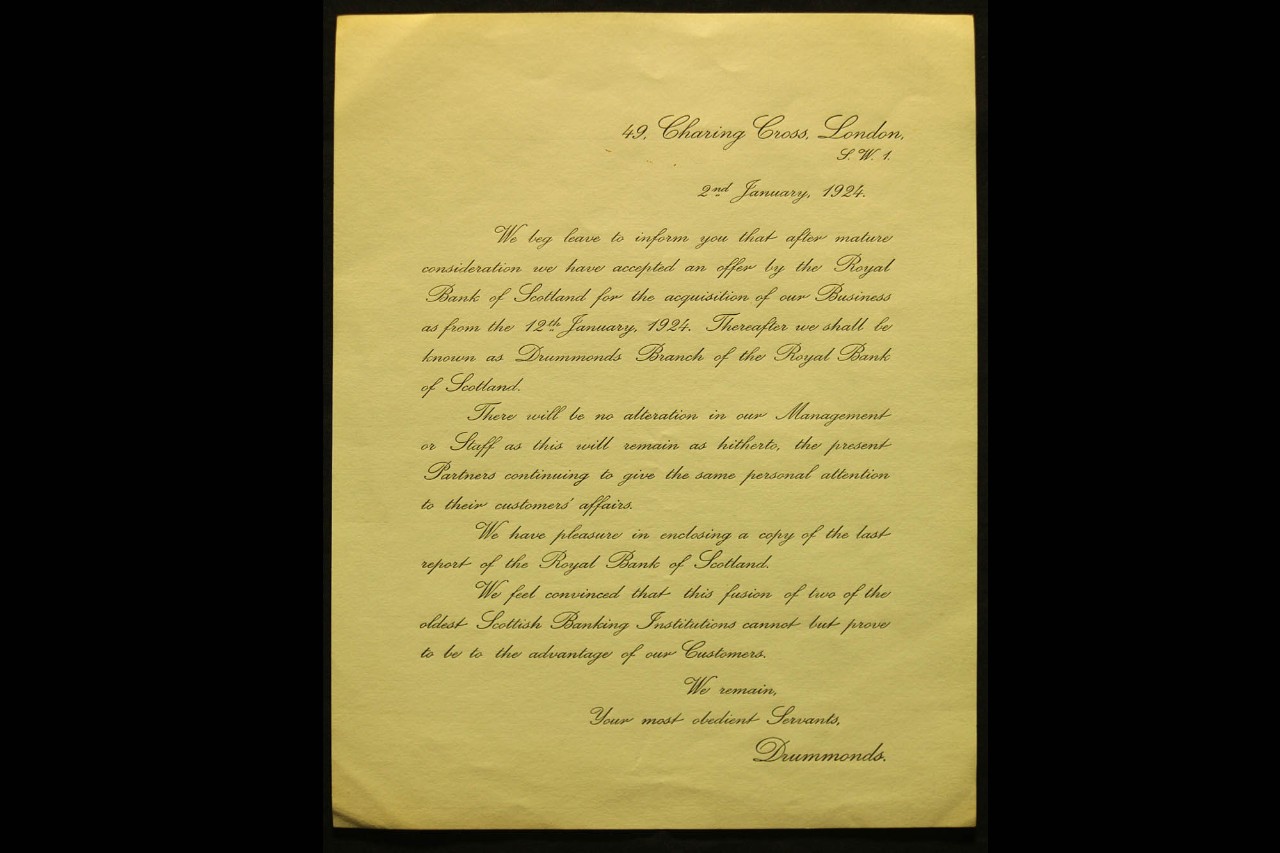 49, Charing Cross, London,
S. W. 1.
2nd January, 1924.
We beg leave to inform you that after mature
consideration we have accepted an offer by the Royal
Bank of Scotland for the acquisition of our Business
as from the 12th January, 1924. Thereafter we shall be
known as Drummonds Branch of the Royal Bank
of Scotland.
There will be no alteration in our Management
or Staff as this will remain as hitherto, the present
Partners continuing to give the same personal attention
to their customers' affairs.
We have pleasure in enclosing a copy of the last
report of the Royal Bank of Scotland.
We feel convinced that this fusion of two of the
oldest Scottish Banking Institutions cannot but prove
to be to the advantage of our Customers.
We remain,
Your most obedient Servants,
Drummonds.